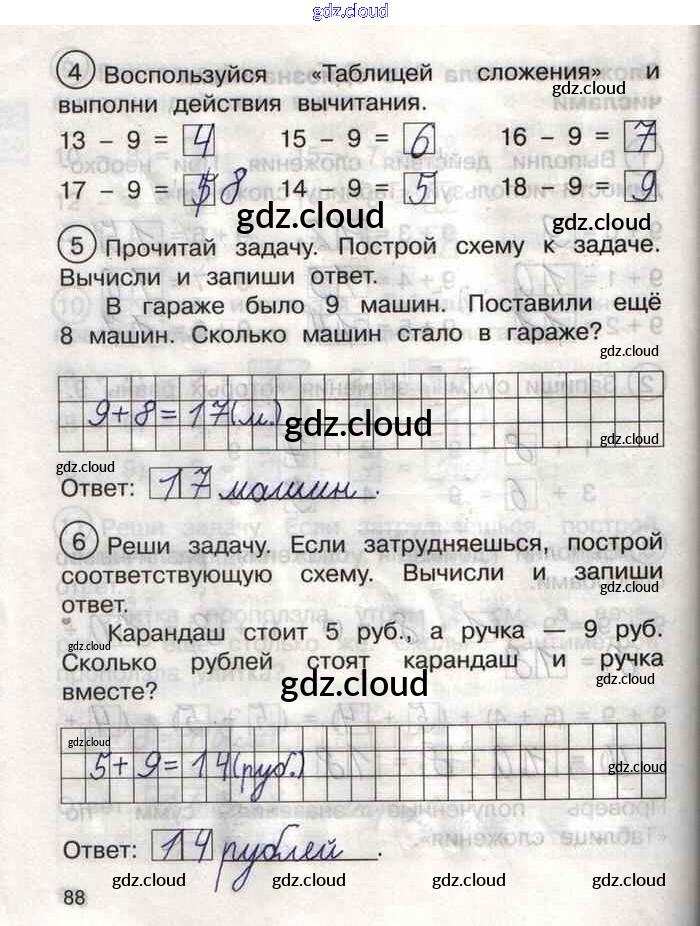 gdz.cloud
4 Воспользуйся «Таблицей сложения» и
gdz.cloud
выполни действия вычитания.
13 – 9 = 4 15 – 9 = 6 16 – 9 = 7
17 – 9 = 8 14 – 9 = 5 18 – 9 = 9
gdz.cloud gdz.cloud
5 Прочитай задачу. Построй схему к задаче.
Вычисли и запиши ответ.
В гараже было 9 машин. Поставили ещё
8 машин. Сколько машин стало в гараже?
gdz.cloud
9+8=17(м.)
gdz.cloud gdz.cloud
gdz.cloud
Ответ: 17 машин.
6 Реши задачу. Если затрудняешься, построй
соответствующую схему. Вычисли и запиши
gdz.cloud
ответ.
Карандаш стоит 5 руб., а ручка — 9 руб.
gdz.cloud
Сколько рублей стоят карандаш и ручка
gdz.cloud gdz.cloud
вместе?
gdz.cloud
5+9=14(руб.)
gdz.cloud
Ответ: 14 рублей.
gdz.cloud gdz.cloud gdz.cloud gdz.cloud
88